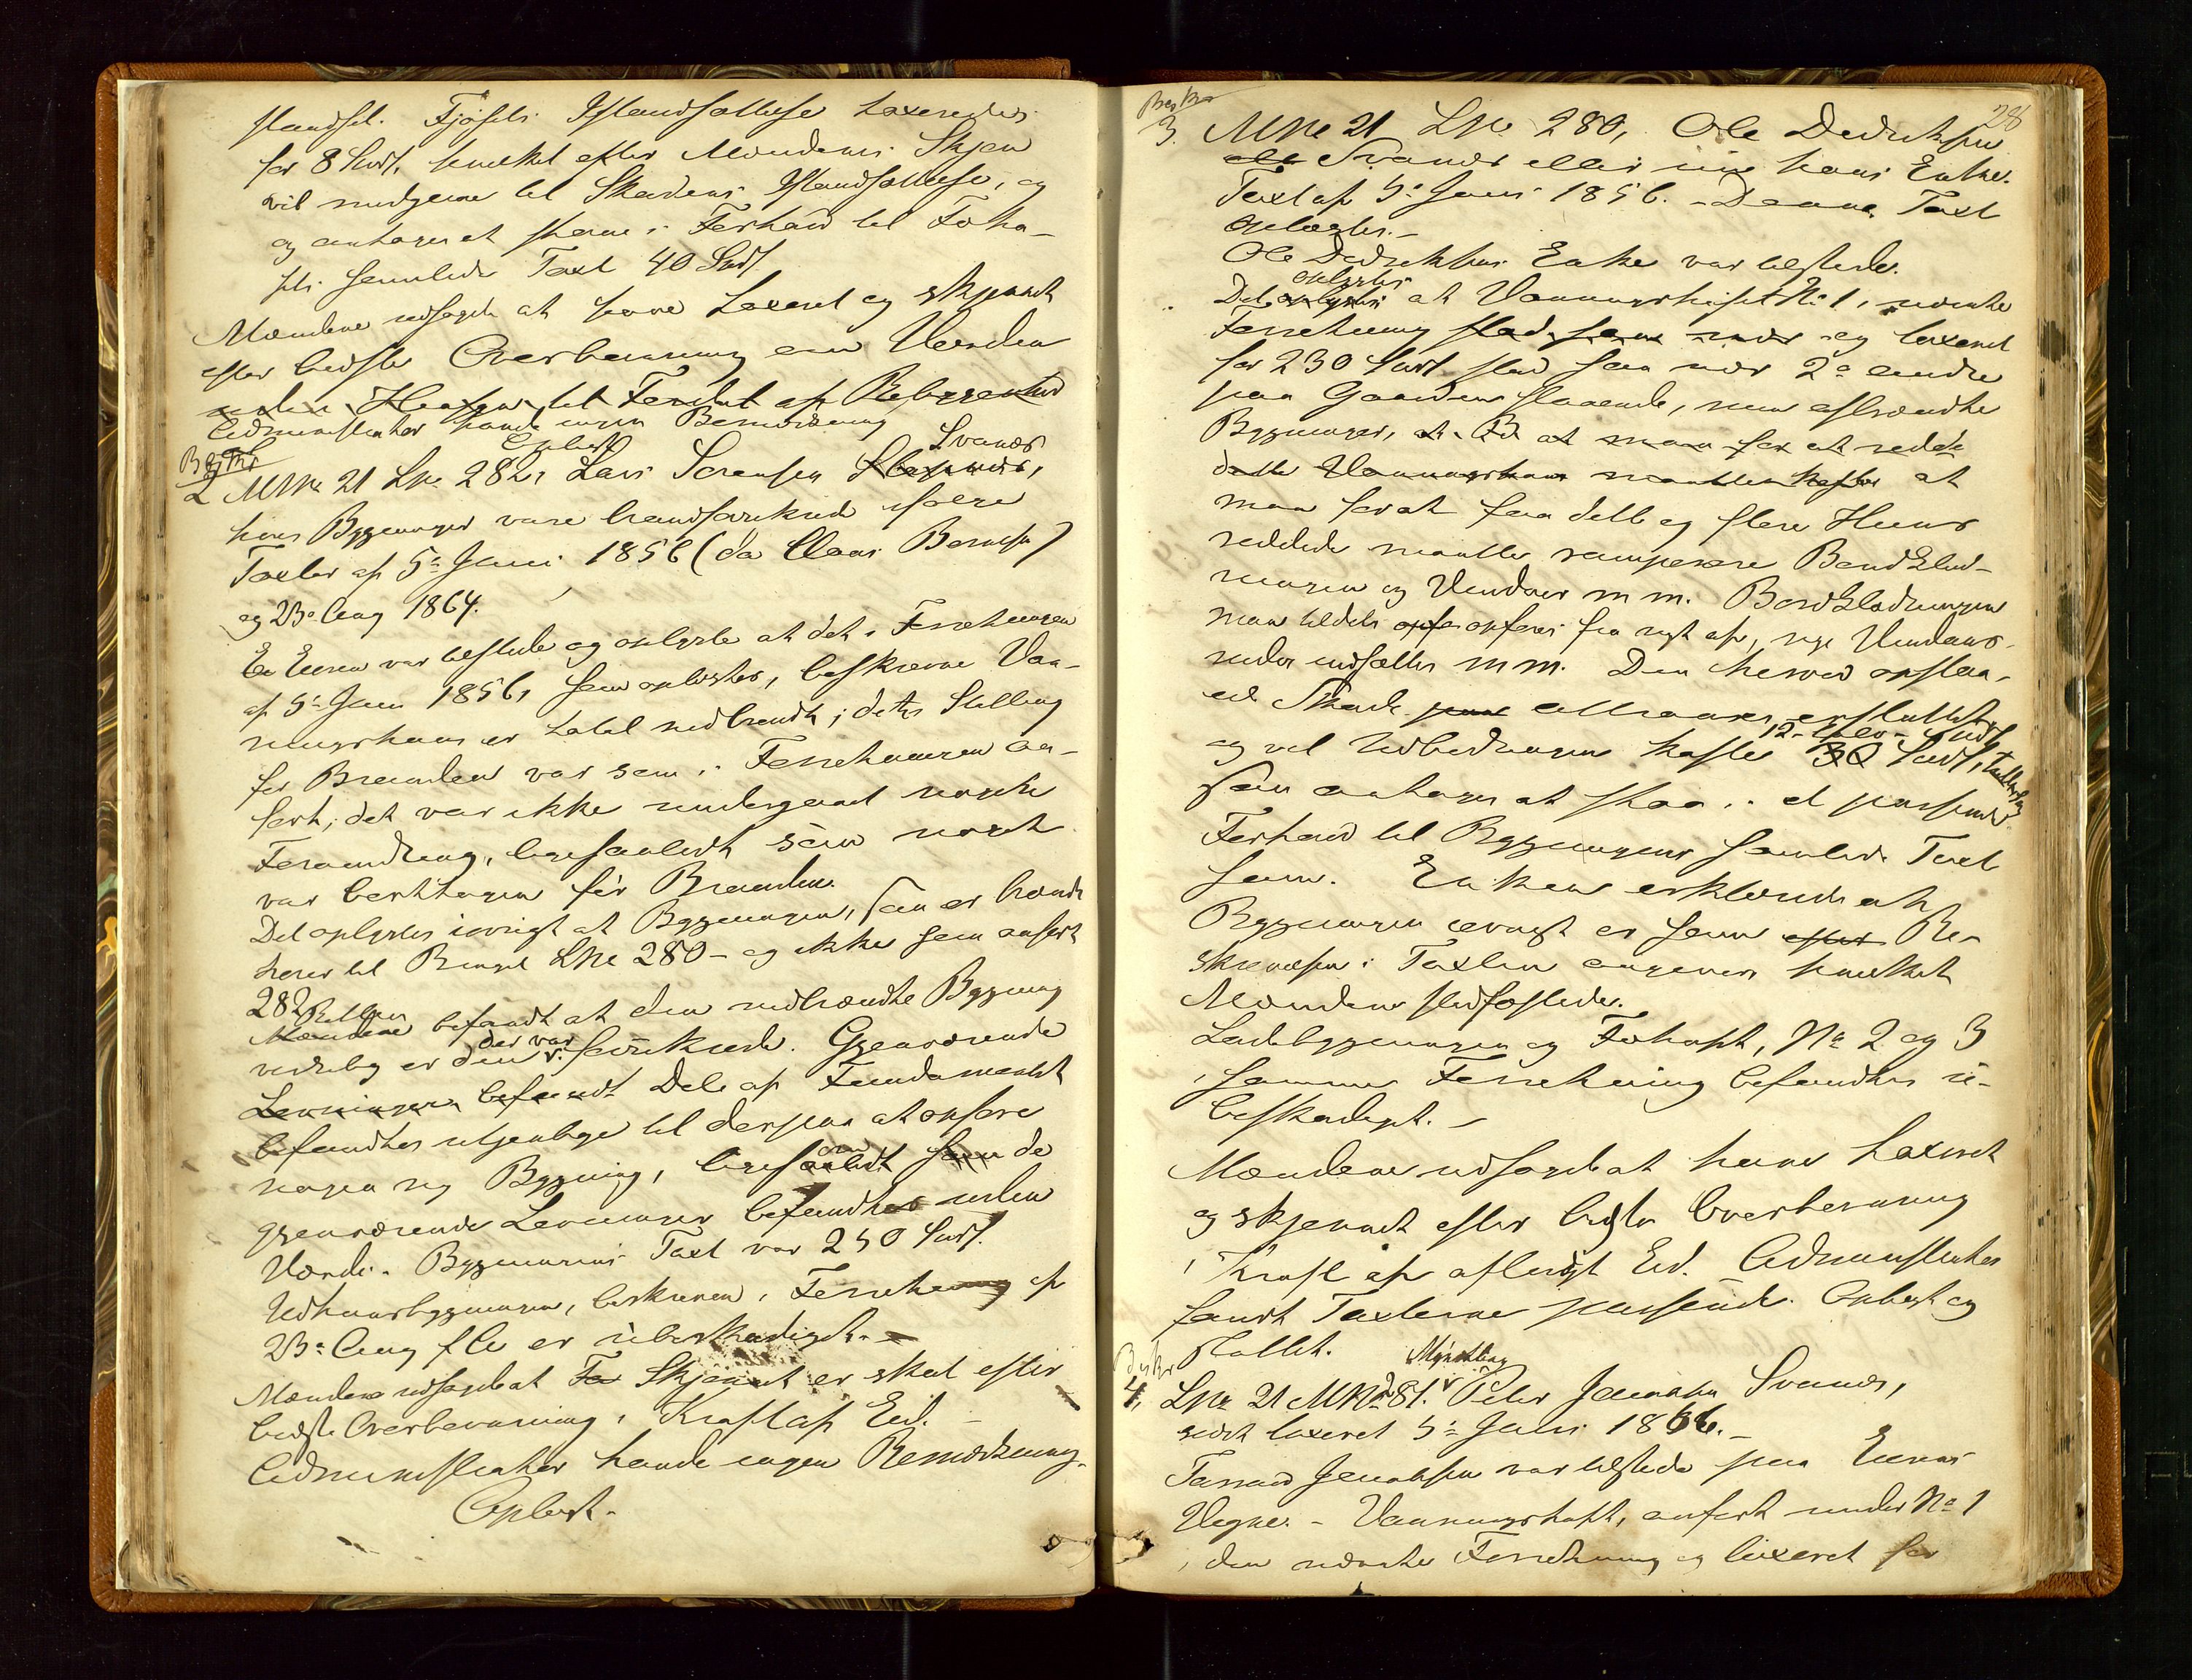 standsl. Fjøsets Istandsættelse taxeredes
for 8 Spd, hvilket efter Mændenes Skjøn
vil medgaae til Skadens Istandsættelse, og
og antages at staae i Forhold til Fæhu-
sets samlede Taxt 40 Spd
Mændene udsagde at have taxeret og skjønnet
efter bedste Overbevisning om Værden
uden Hensyn til Fordel af Bebyggelse
Administrator havde ingen Bemærkning
Oplæst
Besktr
2 MNr 21 LNr 282, Lars Sørensen Svanøs,
hans Bygninger vare brandforsikrede ifølge
Taxter af 5te Juni 1856 (da Claus Berntsen)
og 23de Aug 1864.
Eieren var tilstede og oplyste at det i Forretningen
af 5te Juni 1856, som oplæstes, beskrevne Vaa-
ningshuus er total nedbrændt; dettes Stilling
før Branden var som i Forretningen an-
ført; det var ikke undergaaet nogen
Forandring, ligesaalidt som noget
var borttagen før Branden.
Det oplystes iøvrigt at Bygningen, som er brændt
hører til Brugt LNr 280 - og ikke som anført
282
Retten befandt at den nedbrændte Bygning
virkelig er den der var forsikrede. Gjenværende
Levninger befandt Dele af Fundamentet
befandtes utjenlige til derpaa at opføre
nogen ny Bygning, ligesom de
gjenværende Levninger befandtes uden
Værdi. Bygningens Taxt var 250 Spd.
Udhuusbygningen, beskreven i Forretning af
23de Aug f A er ubeskadiget.
Mændene udsagde at Skjønnet er skeet efter
bedste Overbevisning i Kraft af Eed.
Administrator havde ingen Bemærkning.
Oplæst.
28
Besktr
3. MNr 21 LNr 280, Ole Dedriksen
Svanøs eller nu hans Enke.
Taxt af 5te Juni 1856. - Denne Taxt
oplæstes. -
Ole Dedriksens Enke var tilstede.
oplystes
Det at Vaaningshuset No 1, i nævnte
Forretning stod saa nær og taxeret
for 230 Spd stod saa nær 2de andre
paa Gaarden staaende, nu afbrændte
Bygninger, at man for at redde
dette Vaaningshuus maatte at
man for at faa dette og flere Huus
reddede maatte ramponere Bordklæd-
ningen og Vinduer m m. Bordklædningen
maa tildels opføres fra nyt af, nye Vindues-
ruder indsættes m m. Den herved opstaa-
ede Skade attraaes erstattet
12 - tolv - Spd
og vil Udbedringen koste 30 Spd,
som antages at staa i et passende
Forhold til Bygningens samlede Taxt
Sum. Enken erklærede at
Bygningen iøvrigt er som Be-
skrivelsen i Taxten angiver hvilket
Mændene stadfæstede.
Ladebygningen og Fæhuset, No 2 og 3
i samme Forretning befandtes u-
beskadiget. -
Mændene udsagde at have taxeret
og skjønnet efter bedste Overbevisning
i Kraft af aflagt Eed. Administrator
fandt Taxterne passende. Oplæst og
Sluttet.
Besktr
4, LNr 21 MNr 281. Myndtling Peder Jonassen Svanøs,
sidst taxeret 5te Juni 1856. -
Jonassen var tilstede paa Eierens
Vegne. - Vaaningshuset, anført under No 1
i den nævnte Forretning og taxeret for